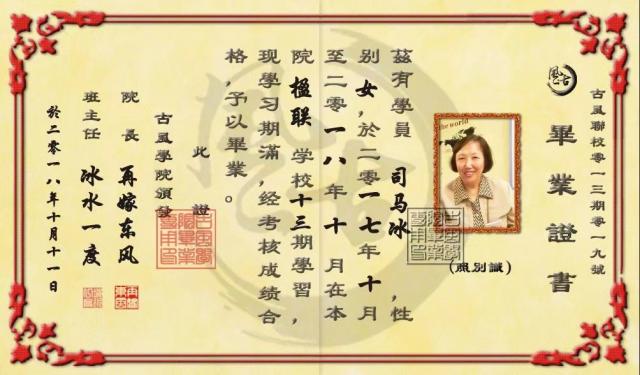 古風聯校零一三期零一九號
畢業證書
the world
(照別識)
茲有學員 司马冰 ,性
别 女,於二零一七年十月
至二零一八年十月在本
院 楹联 学校十三期學習,
现學习期滿,经考核成绩合
格,予以畢業。
此證
古風學院頒發
院長 再嫁东风
班主任 冰水一度
於二零一八年十月十一日